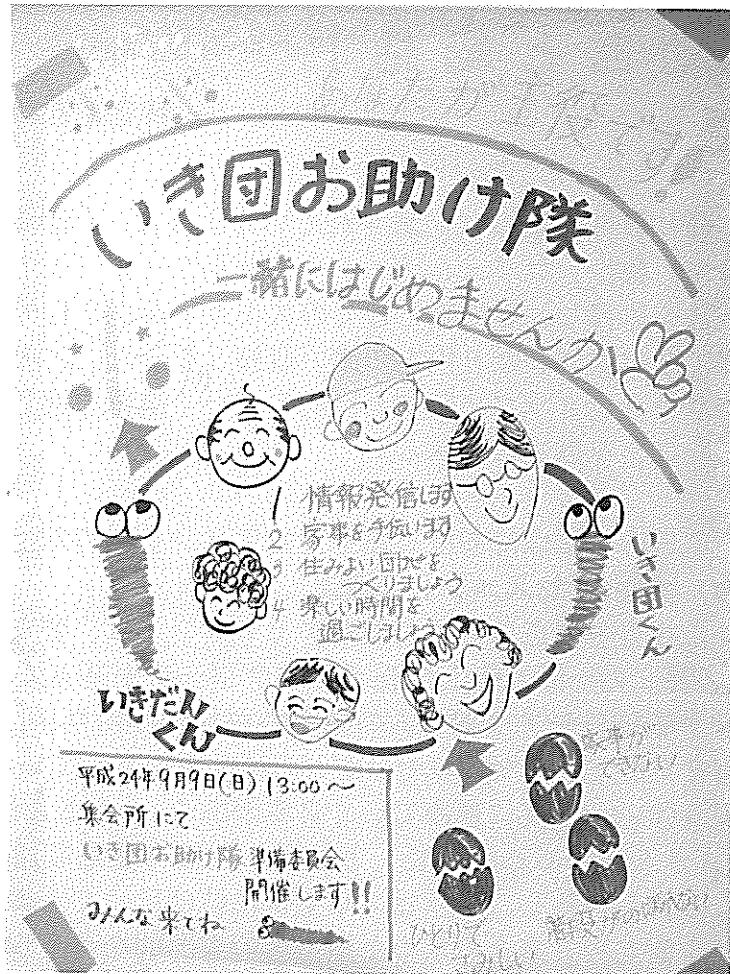 いき団お助け隊
一緒にはじめませんか
1 情報発信します
2 家事を手伝います
3 住みよい団地を
つくりましょう
4 楽しい時間を
過ごしましょう
いき団くん
いきだん
くん
平成24年9月9日(日) 13:00～
集会所にて
いき団お助け隊 準備委員会
開催します!!
みんな来てね
ひとりで
さみしい